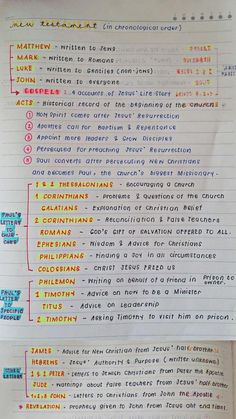 new testament (in chronological order)
MATTHEW - written to Jews
MARK - written to Romans
LUKE - written to Gentiles (non-jews)
JOHN - written to everyone
GOSPELS : 4 accounts of Jesus' Life Story
ACTS - Historical record of the beginning of the Church
① Holy Spirit comes after Jesus' Resurrection
② Apostles call for Baptism & Repentance
③ Appoint more leaders & Grow Disciples
④ Persecuted for preaching Jesus' Resurrection
⑤ Saul converts after persecuting New Christians
and becomes Paul, the church's Biggest Missionary.
PAUL'S LETTER TO CHURCHES
1 & 2 THESSALONIANS - Encouraging a Church
1 CORINTHIANS - Problems & Questions of the Church
GALATIANS - Explanation of Christian Belief
2 CORINTHIANS - Reconciliation & False Teachers
ROMANS - GOD'S GIFT OF SALVATION OFFERED TO ALL.
EPHESIANS - Wisdom & Advice for Christians
PHILIPPIANS - Finding a Joy in all circumstances
COLOSSIANS - CHRIST JESUS FREED US
PAUL'S LETTER TO SPECIFIC PEOPLE
PHILEMON - Writing on behalf of a friend in Prison to owner.
1 TIMOTHY - Advice on how to be a Minister
TITUS - Advice on Leadership
2 TIMOTHY - Asking Timothy to visit him on prison.
LETTERS
JAMES - Advice for New Christian from Jesus' half-brother
HEBREWS - Jesus' Authority & Purpose (writer unknown)
1 & 2 PETER - Letters to Jewish Christians from Peter the Apostle
JUDE - Warnings about false teachers from Jesus' half-brother
1 2 & 3 JOHN - Letters to Christians from John the Apostle
REVELATION - Prophecy given to John from Jesus abt end times.